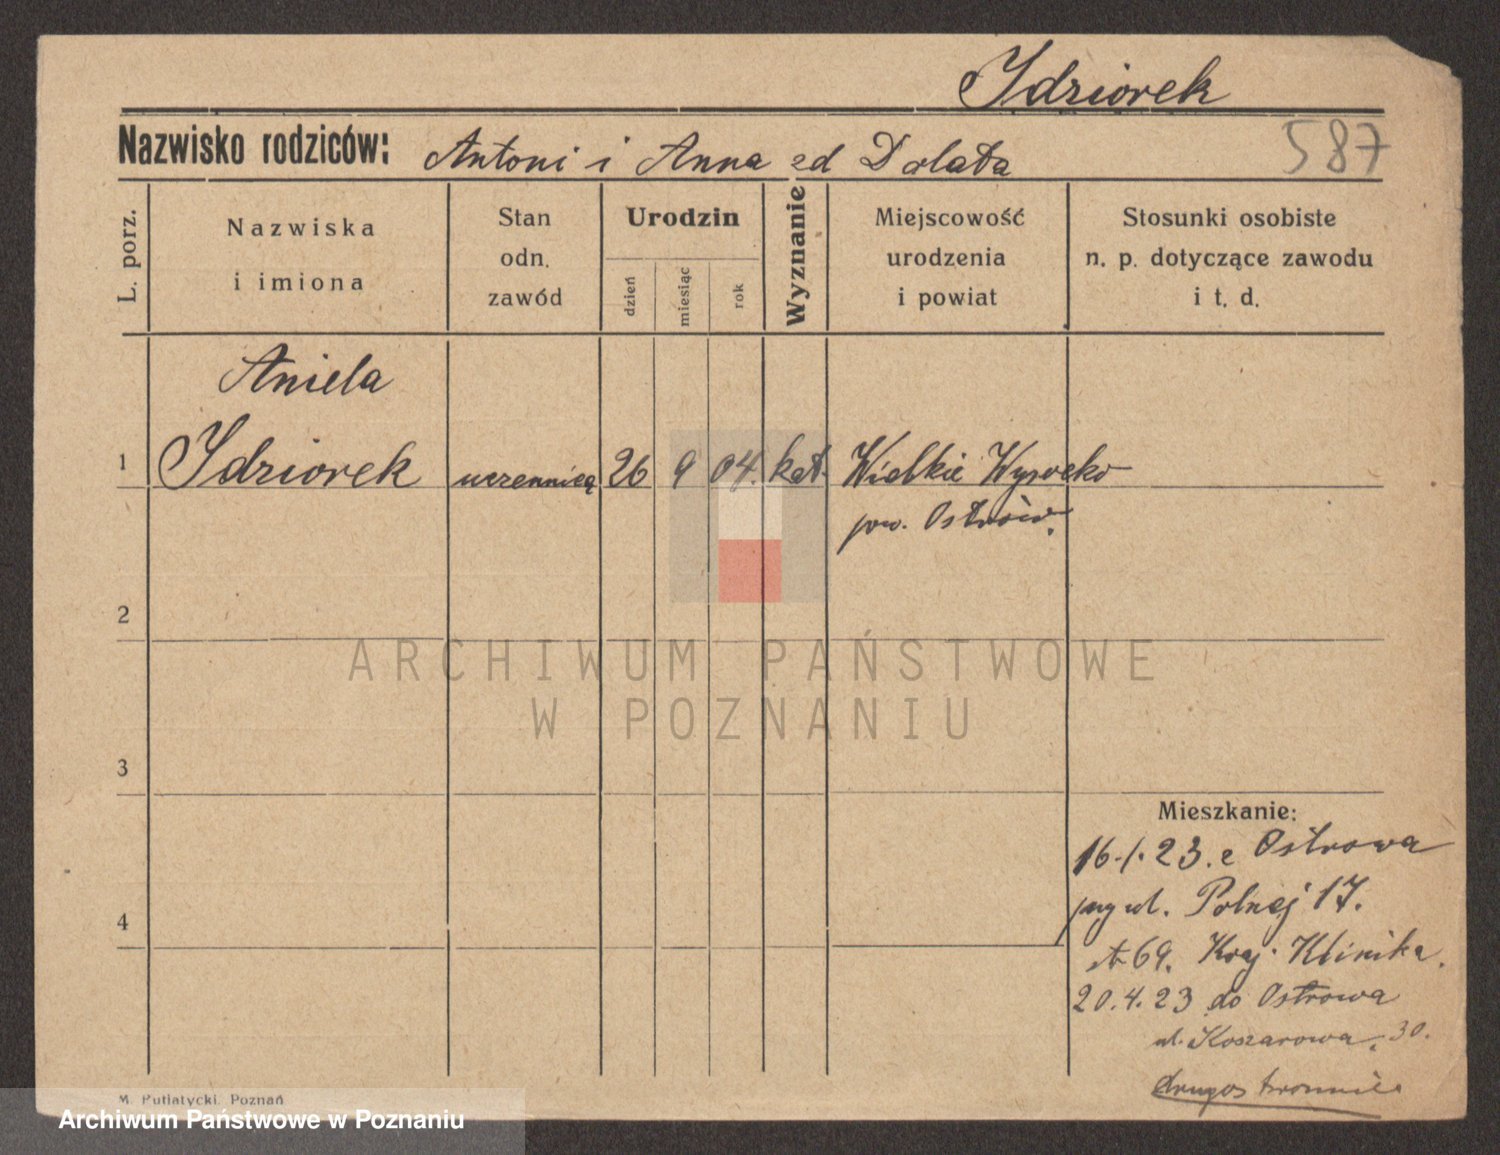 Idziorek
587
Nazwisko rodziców: Antoni i Anna zd Dolata
L. porz.
Nazwiska
i imiona
Stan
odn.
zawód
Urodzin
dzień
miesiąc
rok
Wyznanie
Miejscowość
urodzenia
i powiat
Stosunki osobiste
n. p. dotyczące zawodu
i t. d.
Aniela
1 Idziorek uczennica 26 9 04. kat. Wielkie Wysocko
pow. Ostrów.
2
ARCHIWUM PAŃSTWOWE
W POZNANIU
3
Mieszkanie:
16.1.23. z Ostrowa
przy ul. Polnej 17.
69. Kraj. Klinika.
20.4.23 do Ostrowa
ul. Koszarowa 30.
4
M. Putiatycki, Poznań
Archiwum Państwowe w Poznaniu